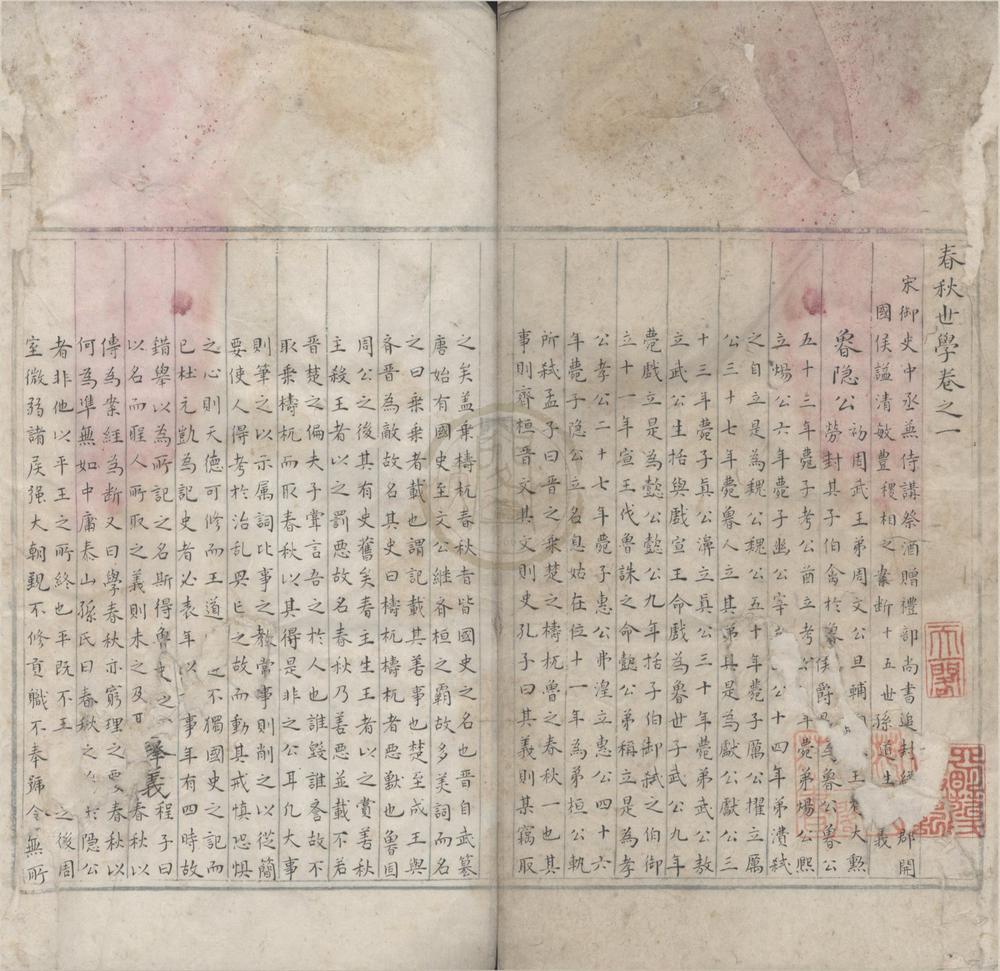 春秋世學卷之一
宋御史中丞兼侍講祭酒贈禮部尚書追封 郡開
國侯謚清敏豐稷相之彙斷十五世孫道生 義
魯隐公 初周武王弟周文公旦輔 王 大勲
勞封其子伯禽於魯侯爵 魯公魯公
五十三年薨子考公酋立考 年薨弟煬公熈
立煬公六年薨子幽公宰 公十四年弟濞弑
之自立是為魏公魏公五十年薨子厲公擢立厲
公三十七年薨魯人立其弟具是為獻公獻公三
十三年薨子真公濞立真公三十年薨弟武公敖
立武公生括與戲宣王命戲為魯世子武公九年
薨戲立是為懿公懿公九年括子伯御弑之伯御
立十一年宣王伐魯誅之命懿公弟稱立是為孝
公孝公二十七年薨子惠公弗湟立惠公四十六
年薨子隐公立名息姑在位十一年為弟桓公軌
所弑孟子曰晉之乗楚之檮杌魯之春秋一也其
事則齊桓晉文其文則史孔子曰其義則某竊取
之矣盖乗檮杌春秋者皆國史之名也晋自武墓
唐始有國史至文公繼斉桓之霸故多美詞而名
之曰乗乗者載也謂記載其善事也楚至成王與
斉晋為敵故名其史曰檮杌檮杌者惡獸也魯固
周公之後其有史舊矣春主生王者以之賞善秋
主殺王者以之罰惡故名春秋乃善惡並載不若
晋楚之偏夫子嘗言吾之於人也誰毀誰譽故不
取乗檮杌而取春秋以其得是非之公耳凡大事
則筆之以示属詞比事之教常事則削之以從簡
要使人得考於治乱興亡之故而動其戒慎恐惧
之心則天德可修而王道 之不獨國史之記而
已杜元凱為記史者必表年以 事年有四時故
錯舉以為所記之名斯得魯史之 舉義程子曰
以名而聖人所取之義則未之及 春秋以
傳為案經為断又曰學春秋亦窮理之要春秋以
何為凖無如中庸泰山孫氏曰春秋之 於隠公
者非他以平王之所終也平既不王 之後周
室微弱諸侯强大朝覲不修貢職不奉號令無所